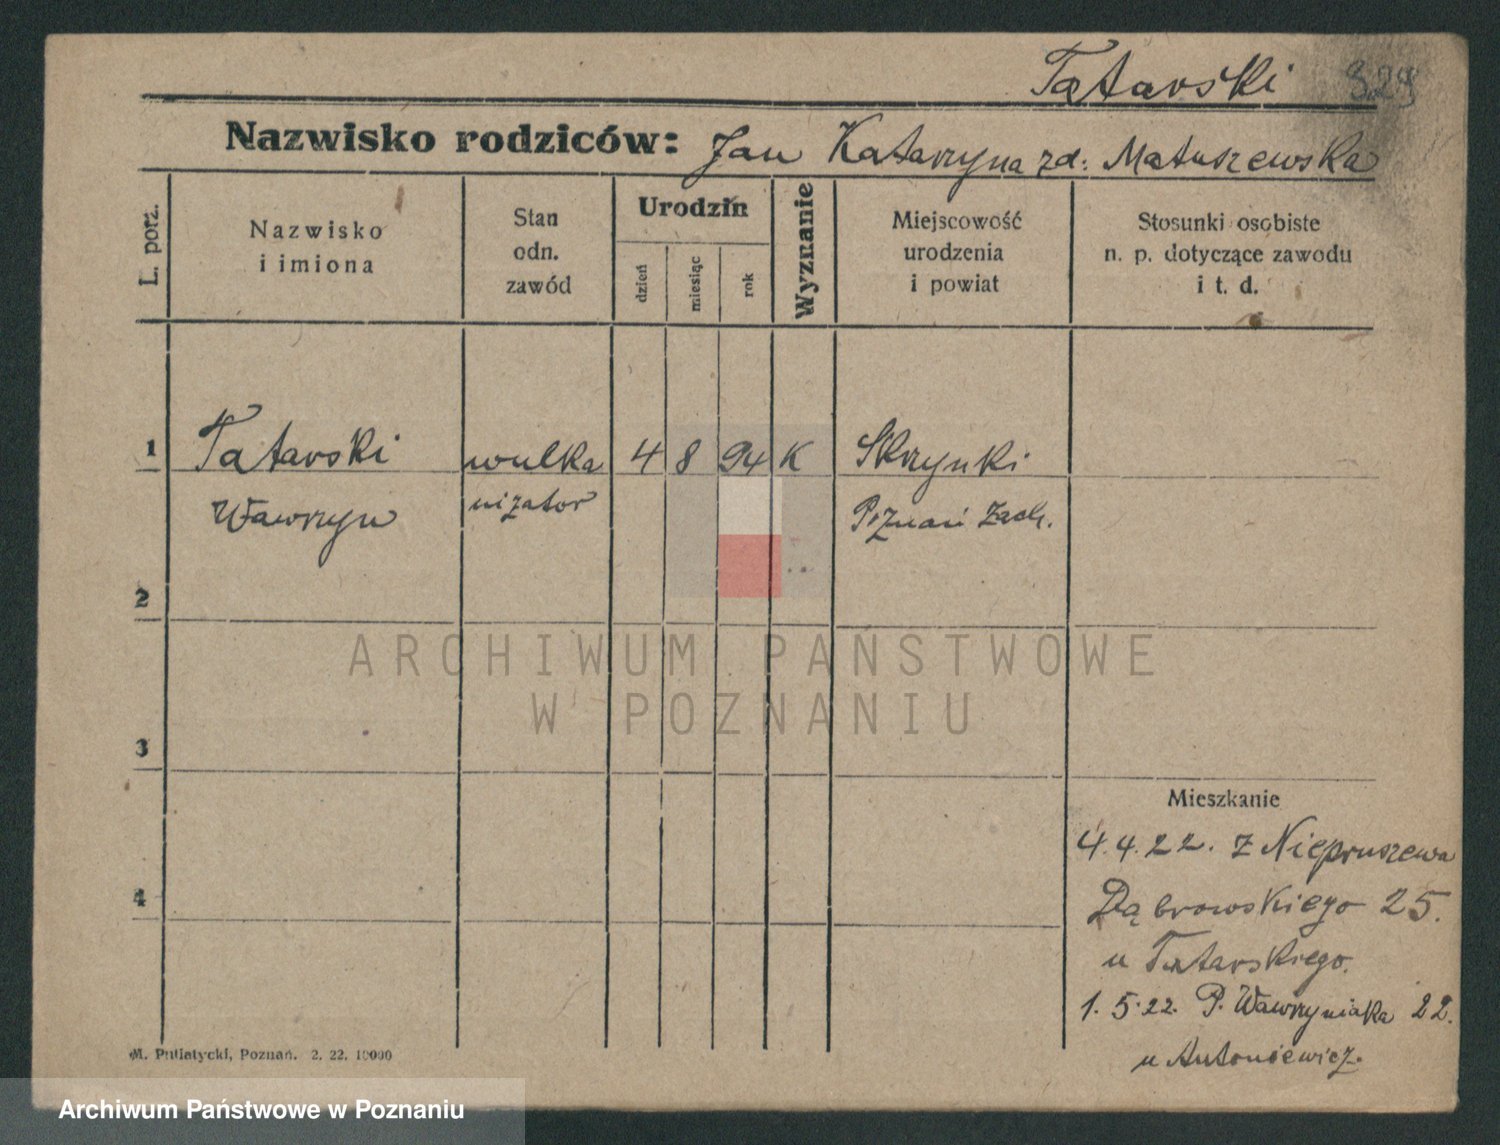 Tatarski 329
Nazwisko rodziców: Jan Katarzyna zd: Matuszewska
L. porz.
Nazwisko
i imiona
Stan
odn.
zawód
Urodzin
dzień
miesiąc
rok
Wyznanie
Miejscowość
urodzenia
i powiat
Stosunki osobiste
n. p. dotyczące zawodu
i t. d.
1 Tatarski wulka 4 8 94 K Skrzynki
Wawrzyn nizator Poznań Zach.
2
ARCHIWUM PAŃSTWOWE
W POZNANIU
3
Mieszkanie
4.4.22. z Niepruszewa
4
Dąbrowskiego 25.
u Tatarskiego.
1.5.22. P. Wawrzyniaka 22.
u Antoniewicz.
M. Putiatycki, Poznań. 2. 22. 10000
Archiwum Państwowe w Poznaniu